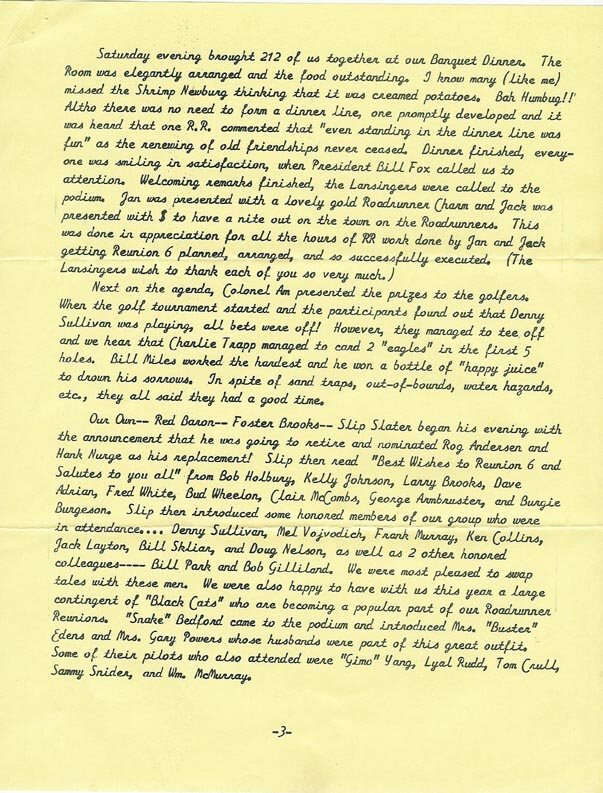 Saturday evening brought 212 of us together at our Banquet Dinner. The
Room was elegantly arranged and the food outstanding. I know many (like me)
missed the Shrimp Newburg thinking that it was creamed potatoes. Bah Humbug!!
Altho there was no need to form a dinner line, one promptly developed and it
was heard that one R.R. commented that "even standing in the dinner line was
fun" as the renewing of old friendships never ceased. Dinner finished, every-
one was smiling in satisfaction, when President Bill Fox called us to
attention. Welcoming remarks finished, the Lansingers were called to the
podium. Jan was presented with a lovely gold Roadrunner Charm and Jack was
presented with $ to have a nite out on the town on the Roadrunners. This
was done in appreciation for all the hours of RR work done by Jan and Jack
getting Reunion 6 planned, arranged, and so successfully executed. (The
Lansingers wish to thank each of you so very much.)
Next on the agenda, Colonel Am presented the prizes to the golfers.
When the golf tournament started and the participants found out that Denny
Sullivan was playing, all bets were off! However, they managed to tee off
and we hear that Charlie Trapp managed to card 2 "eagles" in the first 5
holes. Bill Miles worked the hardest and he won a bottle of "happy juice"
to drown his sorrows. In spite of sand traps, out-of-bounds, water hazards,
etc., they all said they had a good time.
Our Own-- Red Baron-- Foster Brooks-- Slip Slater began his evening with
the announcement that he was going to retire and nominated Rog Andersen and
Hank Nurge as his replacement! Slip then read "Best Wishes to Reunion 6 and
Salutes to you all" from Bob Holbury, Kelly Johnson, Larry Brooks, Dave
Adrian, Fred White, Bud Wheelon, Clair McCombs, George Armbruster, and Burgie
Burgeson. Slip then introduced some honored members of our group who were
in attendance.... Denny Sullivan, Mel Vojvodich, Frank Murray, Ken Collins,
Jack Layton, Bill Skliar, and Doug Nelson, as well as 2 other honored
colleagues---- Bill Park and Bob Gilliland. We were most pleased to swap
tales with these men. We were also happy to have with us this year a large
contingent of "Black Cats" who are becoming a popular part of our Roadrunner
Reunions. "Snake" Bedford came to the podium and introduced Mrs. "Buster"
Edens and Mrs. Gary Powers whose husbands were part of this great outfit.
Some of their pilots who also attended were "Gimo" Yang, Lyal Rudd, Tom Crull,
Sammy Snider, and Wm. McMurray.
-3-